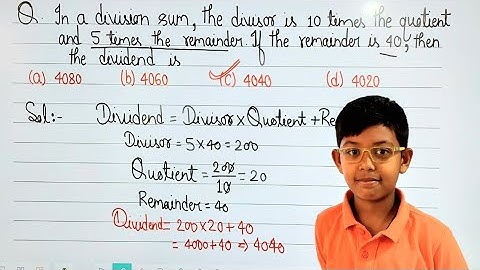 Q. In a division sum, the divisor is 10 times the quotient
and 5 times the remainder. If the remainder is 40, then
the dividend is
(a) 4080 (b) 4060 (c) 4040 (d) 4020
Sol:- Dividend = Divisor × Quotient + Re
Divisor = 5 × 40 = 200
Quotient = 200/10 = 20
Remainder = 40
Dividend = 200 × 20 + 40
= 4000 + 40 ⇒ 4040